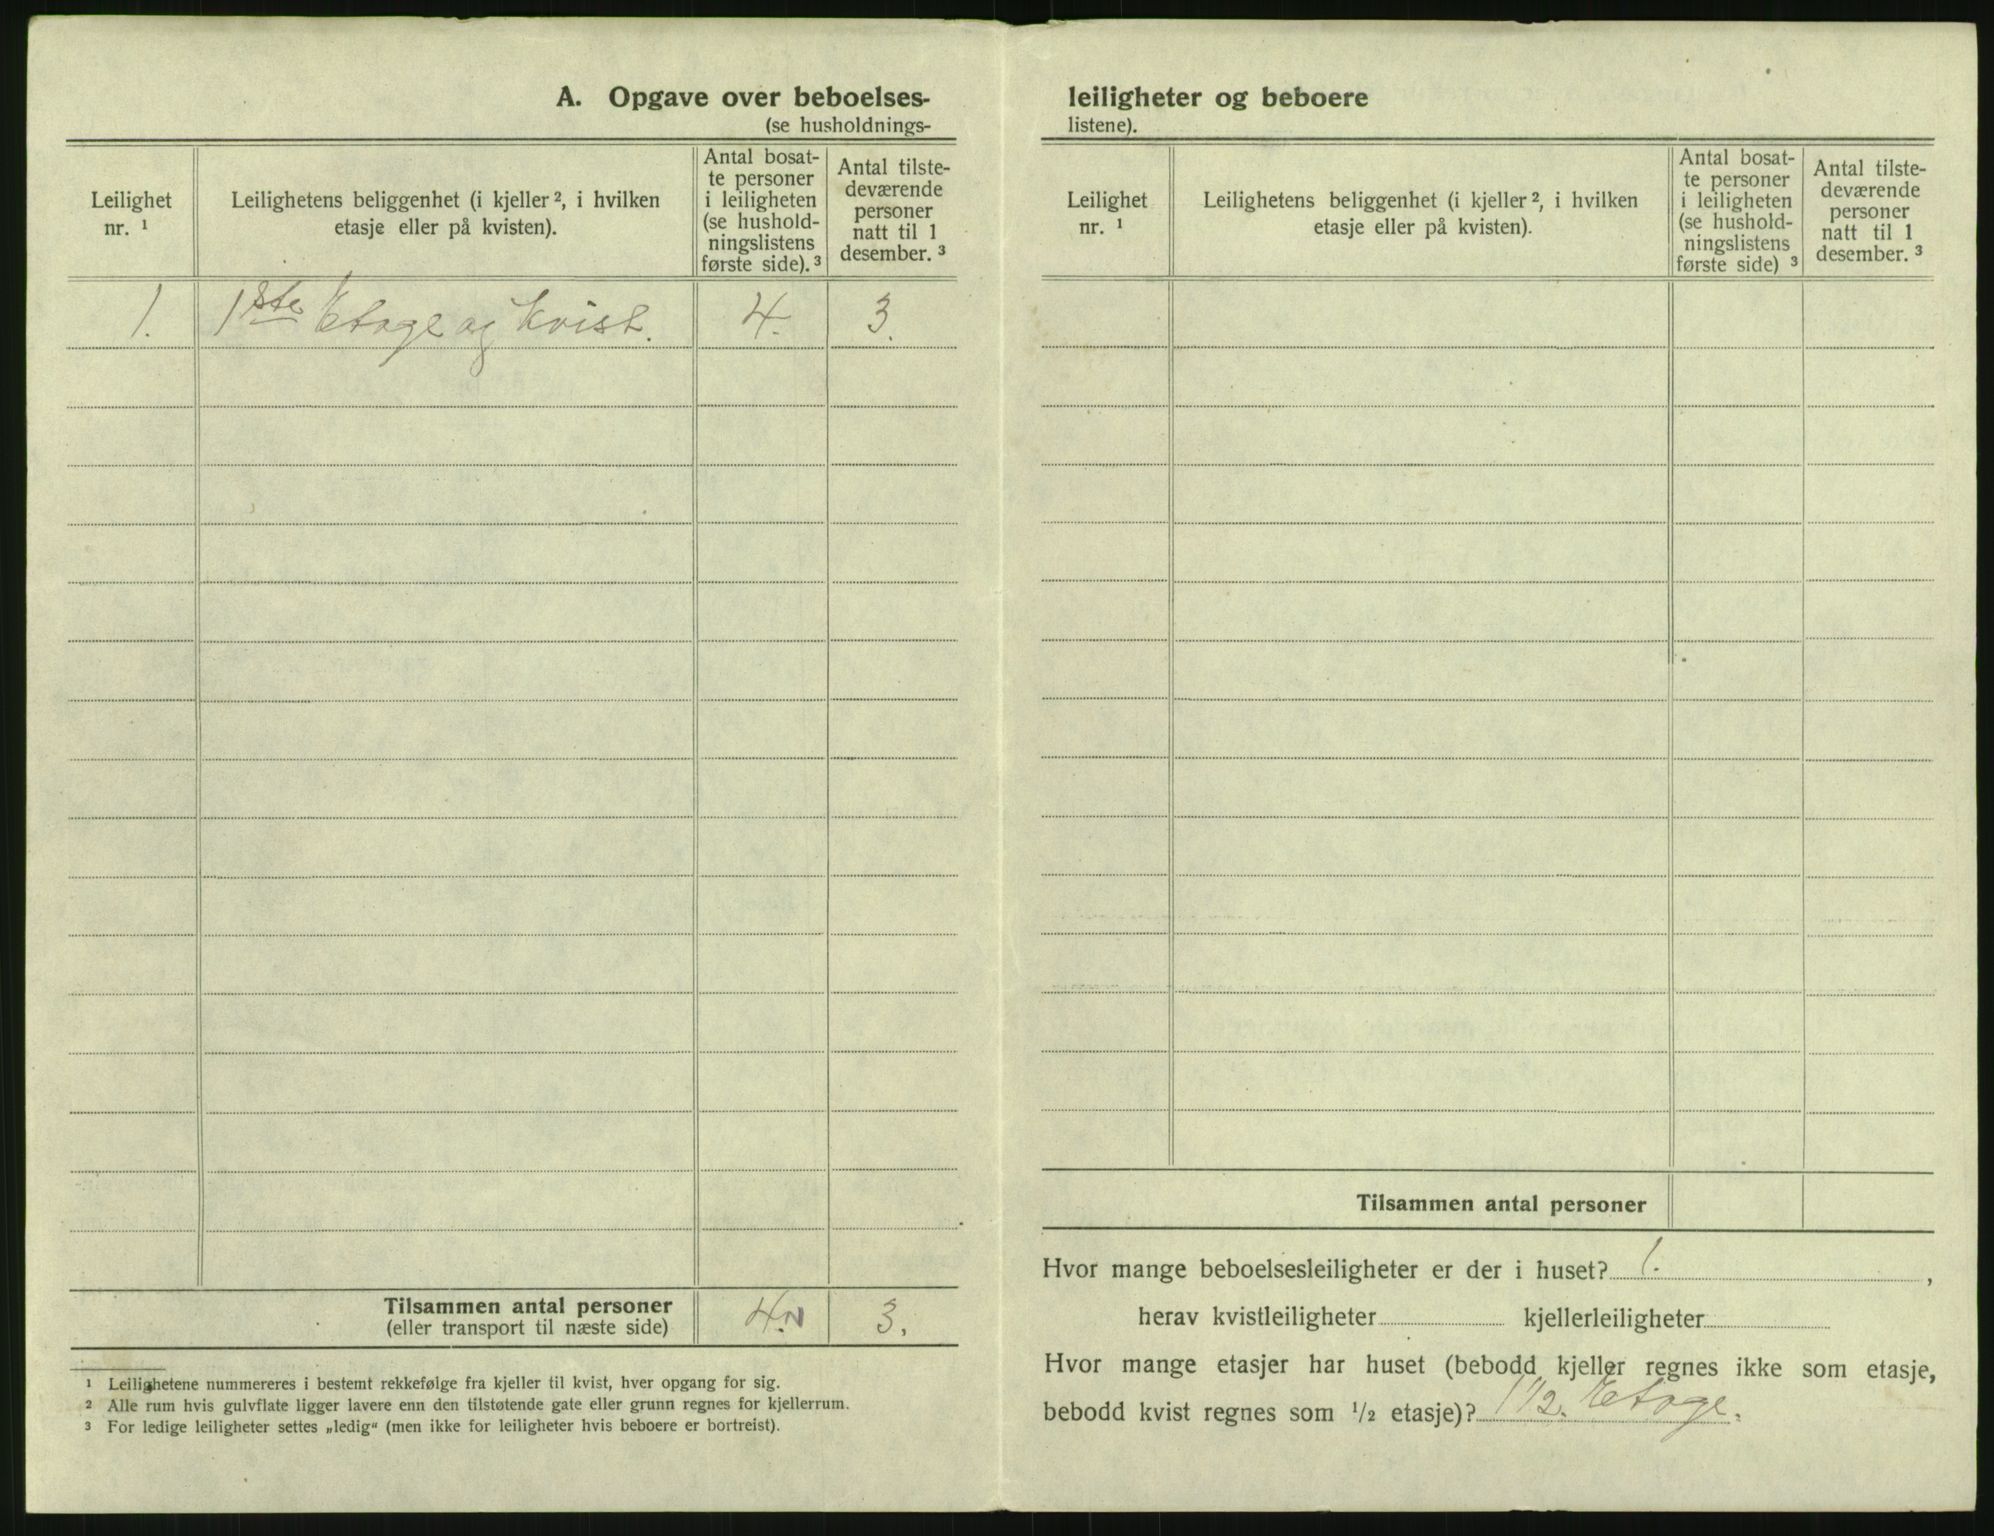 A. Opgave over beboelses-
(se husholdnings-
Leilighet
nr. ¹
Leilighetens beliggenhet (i kjeller ², i hvilken
etasje eller på kvisten).
Antal bosat-
te personer
i leiligheten
(se hushold-
ningslistens
første side). ³
Antal tilste-
deværende
personer
natt til 1
desember. ³
1. 1ste Etage og Kvist. 4. 3.
Tilsammen antal personer
(eller transport til næste side)
4. 3.
¹ Leilighetene nummereres i bestemt rekkefølge fra kjeller til kvist, hver opgang for sig.
² Alle rum hvis gulvflate ligger lavere enn den tilstøtende gate eller grunn regnes for kjellerrum.
³ For ledige leiligheter settes „ledig“ (men ikke for leiligheter hvis beboere er bortreist).
leiligheter og beboere
listene).
Leilighet
nr. ¹
Leilighetens beliggenhet (i kjeller ², i hvilken
etasje eller på kvisten).
Antal bosat-
te personer
i leiligheten
(se hushold-
ningslistens
første side) ³
Antal tilste-
deværende
personer
natt til 1
desember. ³
Tilsammen antal personer
Hvor mange beboelsesleiligheter er der i huset? 1. ,
herav kvistleiligheter kjellerleiligheter
Hvor mange etasjer har huset (bebodd kjeller regnes ikke som etasje,
bebodd kvist regnes som ¹/₂ etasje)? 1 1/2. Etage.